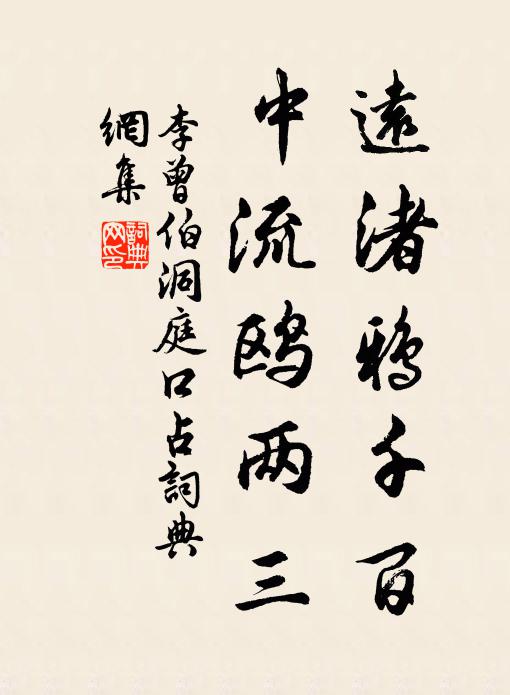 遠渚鴉千百
中流鸥两三
李曾伯洞庭口占詞典
網集
詞典网印